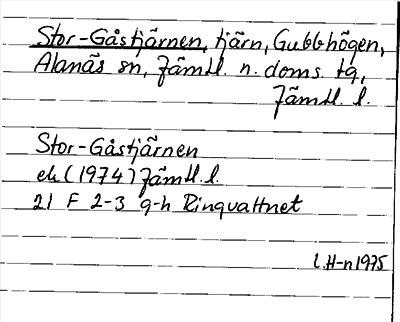 Stor-Gåstjärnen, tjärn, Gubbhögen,
Alanäs sn, Jämtl. n. doms. tg,
Jämtl. l.
Stor-Gåstjärnen
ek (1974) Jämtl. l.
21 F 2-3 g-h Ringvattnet
L.H-n 1975